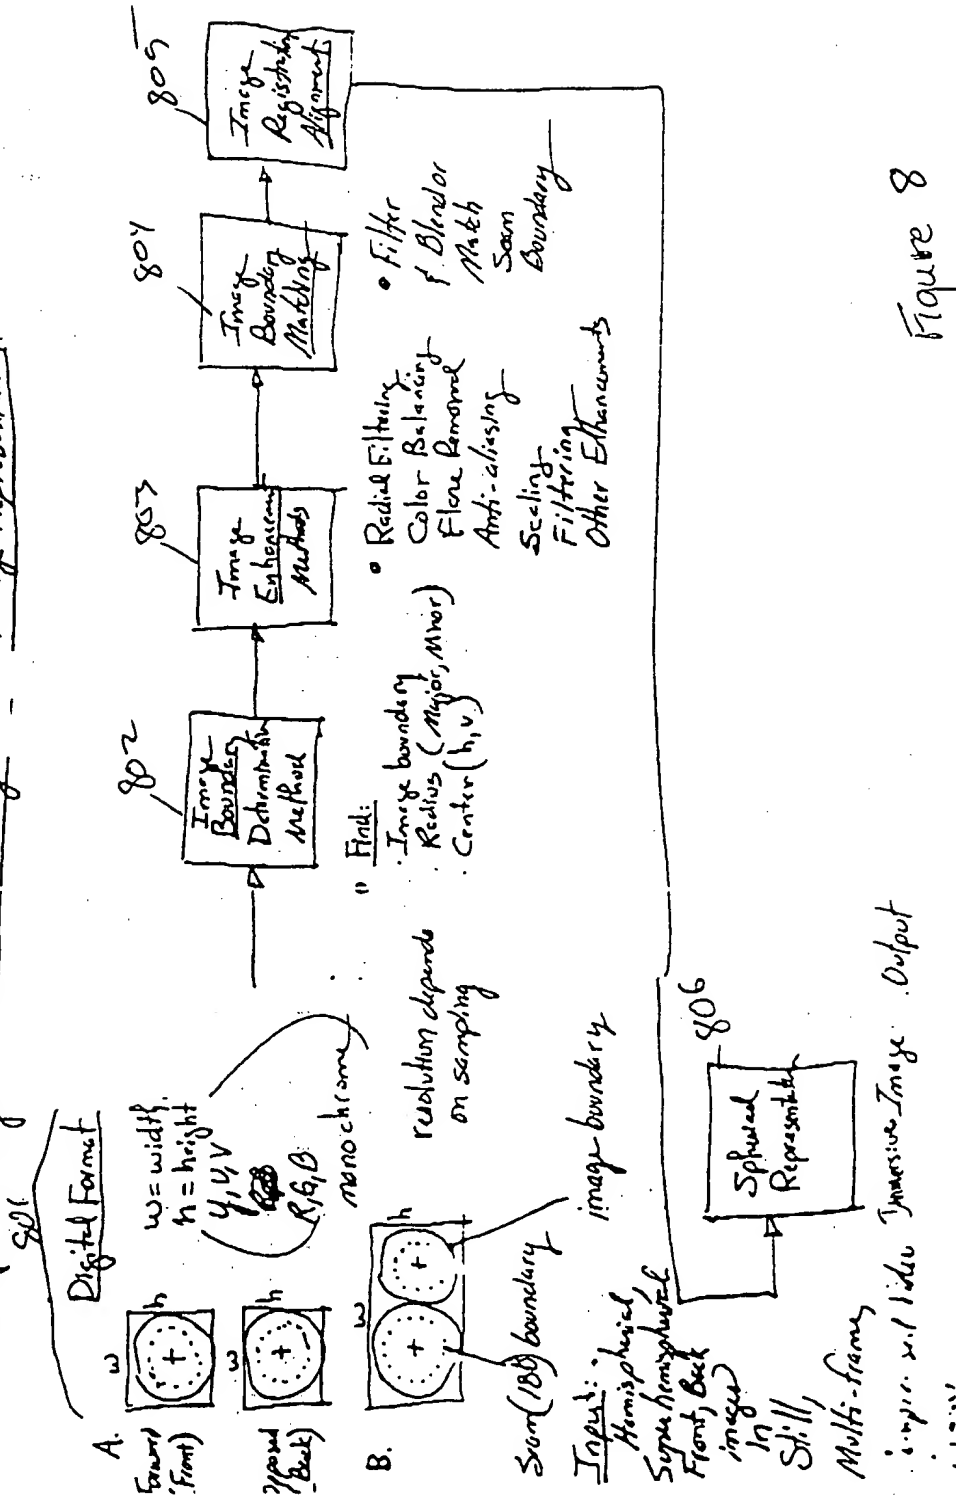 801
Digital Format
A.
Forward
(Front)
w
h
w = width
h = height
Y, U, V
R, G, B
monochrome
Opposed
Back)
w
h
B.
w
h
resolution depends
on sampling
Seam (180) boundary
image boundary
Input:
Hemispherical,
Super hemispherical
Front, Back
images
In
Still,
Multi-frame,
802
Image
Boundary
Determination
Method
1) Find:
. Image boundary
. Radius (Major, Minor)
. Center (h, v)
803
Image
Enhancement
Methods
• Radial Filtering
Color Balancing
Flare Removal
Anti-aliasing
Scaling
Filtering
Other Enhancements
804
Image
Boundary
Matching
• Filter
& Blend or
Match
Seam
Boundary
805
Image
Registration
Alignment
806
Spherical
Representation
Immersive Image Output
Figure 8